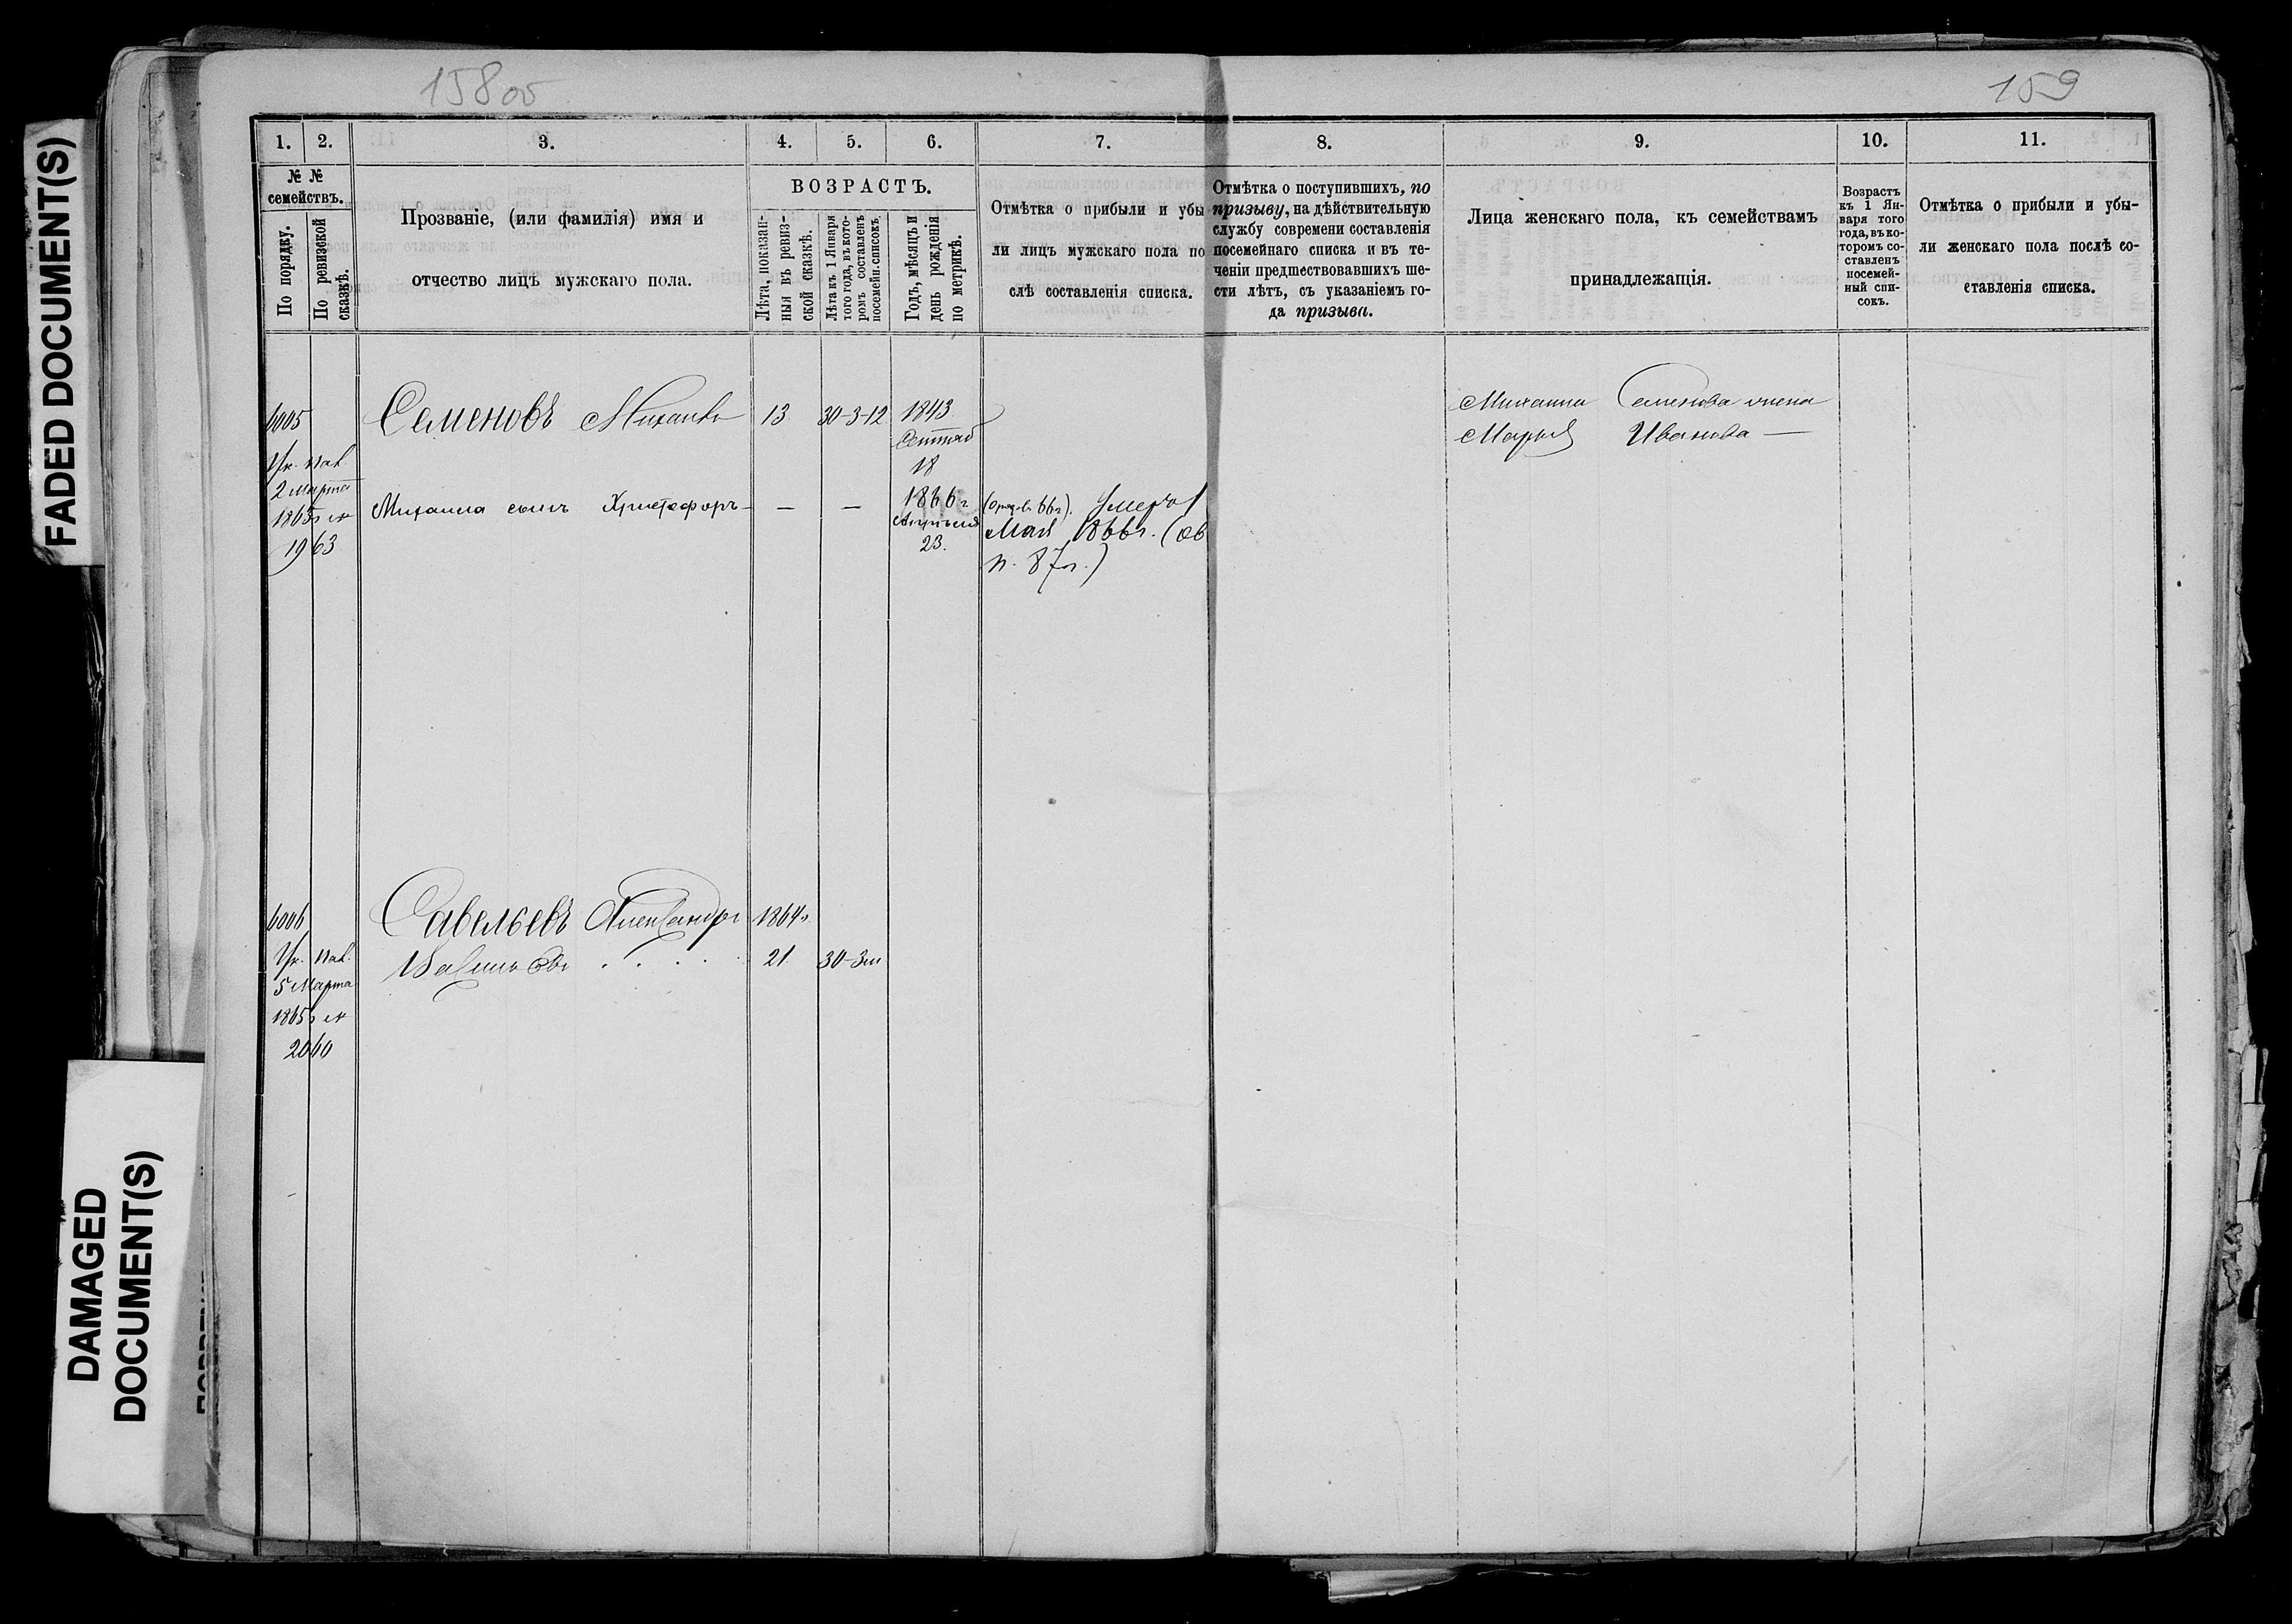 FADED DOCUMENT(S)
DAMAGED
DOCUMENT(S)
158об
159
1. 2. 3. 4. 5. 6. 7. 8. 9. 10. 11.
№ №
семействъ.
По порядку.
По ревизской
сказкѣ.
Прозваніе, (или фамилія) имя и
отчество лицъ мужскаго пола.
ВОЗРАСТЪ.
Лѣта, показан-
ныя въ ревиз-
ской сказкѣ.
Лѣта къ 1 Января
того года, въ кото-
ромъ составленъ
посемейн. списокъ.
Годъ, мѣсяцъ и
день рожденія
по метрикѣ.
Отмѣтка о прибыли и убы
ли лицъ мужскаго пола по
слѣ составленія списка.
Отмѣтка о поступившихъ, по
призыву, на дѣйствительную
службу современи составленія
посемейнаго списка и въ те-
ченіи предшествовавшихъ ше-
сти лѣтъ, съ указаніемъ го-
да призыва.
Лица женскаго пола, къ семействамъ
принадлежащія.
Возрастъ
къ 1 Ян-
варя того
года, въ ко-
торомъ со-
ставленъ
посемей-
ный спи-
сокъ.
Отмѣтка о прибыли и убы-
ли женскаго пола послѣ со-
ставленія списка.
6005 Семеновъ Михаилъ 13 30-3-12 1843
Сентяб
18
Ук. Пал.
2 Марта
1865 г №
1963
Михаила сынъ Христофоръ — — — 1866 г
Апрѣля
23.
Умеръ 1
Мая 1866 г. (об
п. 87 г.)
Михаила Семенова жена
Марья Иванова —
6006 Савельевъ Александръ 1864 г.
Васильевъ 21 30-3 м
Ук. Пал.
5 Марта
1865 г №
2060